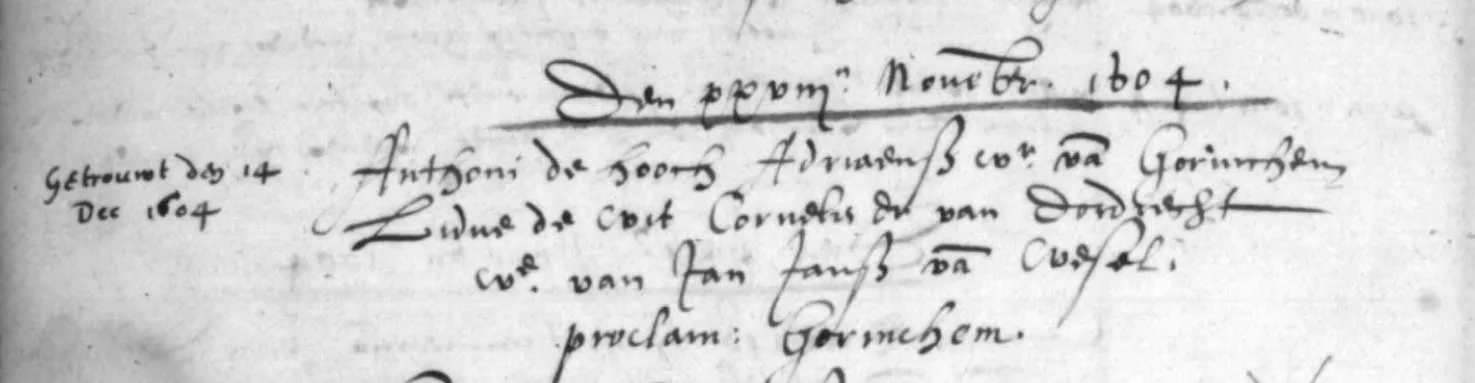 Den xxviij.n Novembr. 1604.
Getrouwt den 14
Dec 1604
Anthoni de hooch Adriaensß wr. vā Gorinchem
Lidue de wit Cornelis dr van Dordrecht
we. van Jan Janß vā Wesel.
proclam: Gorinchem.